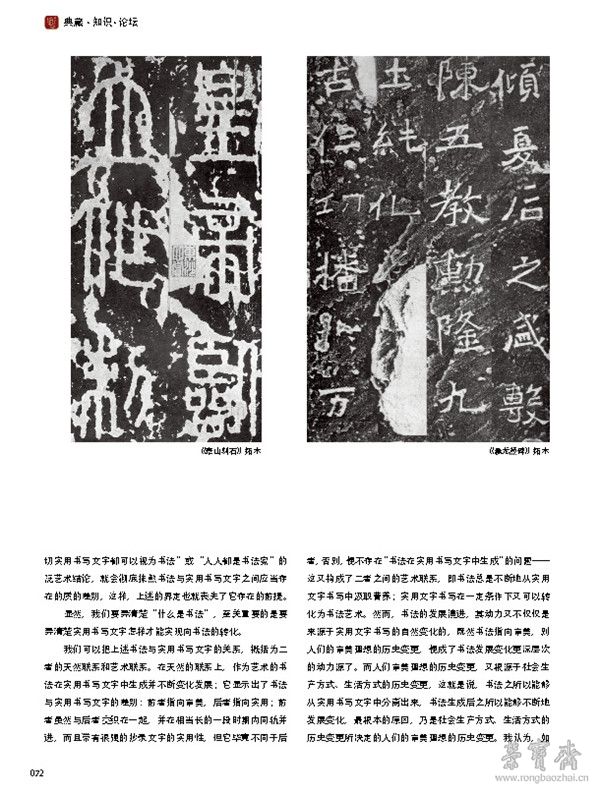 典藏·知识·论坛
夏后之盛敷
陳五教勳隆九
土純化
古仁功播於万
《泰山刻石》拓本
《爨龙颜碑》拓本
切实用书写文字都可以视为书法”或“人人都是书法家”的
泛艺术结论，就会彻底抹煞书法与实用书写文字之间应当存
在的质的差别，这样，上述的界定也就丧失了它存在的前提。
显然，我们要弄清楚“什么是书法”，至关重要的是要
弄清楚实用书写文字怎样才能实现向书法的转化。
我们可以把上述书法与实用书写文字的关系，概括为二
者的天然联系和艺术联系。在天然的联系上，作为艺术的书
法在实用书写文字中生成并不断变化发展；它显示出了书法
与实用书写文字的差别：前者指向审美，后者指向实用；前
者虽然与后者交织在一起，并在相当长的一段时期内同轨并
进，而且带有很强的抄录文字的实用性，但它毕竟不同于后
者，否则，便不存在“书法在实用书写文字中生成”的问题——
这又构成了二者之间的艺术联系，即书法总是不断地从实用
文字书写中汲取营养；实用文字书写在一定条件下又可以转
化为书法艺术。然而，书法的发展演进，其动力又不仅仅是
来源于实用文字书写的自然变化的，既然书法指向审美，则
人们的审美理想的历史变更，便成了书法发展变化更深层次
的动力源了。而人们审美理想的历史变更，又根源于社会生
产方式、生活方式的历史变更，这就是说，书法之所以能够
从实用书写文字中分离出来，书法生成后之所以能够不断地
发展变化，最根本的原因，乃是社会生产方式、生活方式的
历史变更所决定的人们的审美理想的历史变更。我认为，如
022
荣宝斋
www.rongbaozhai.cn